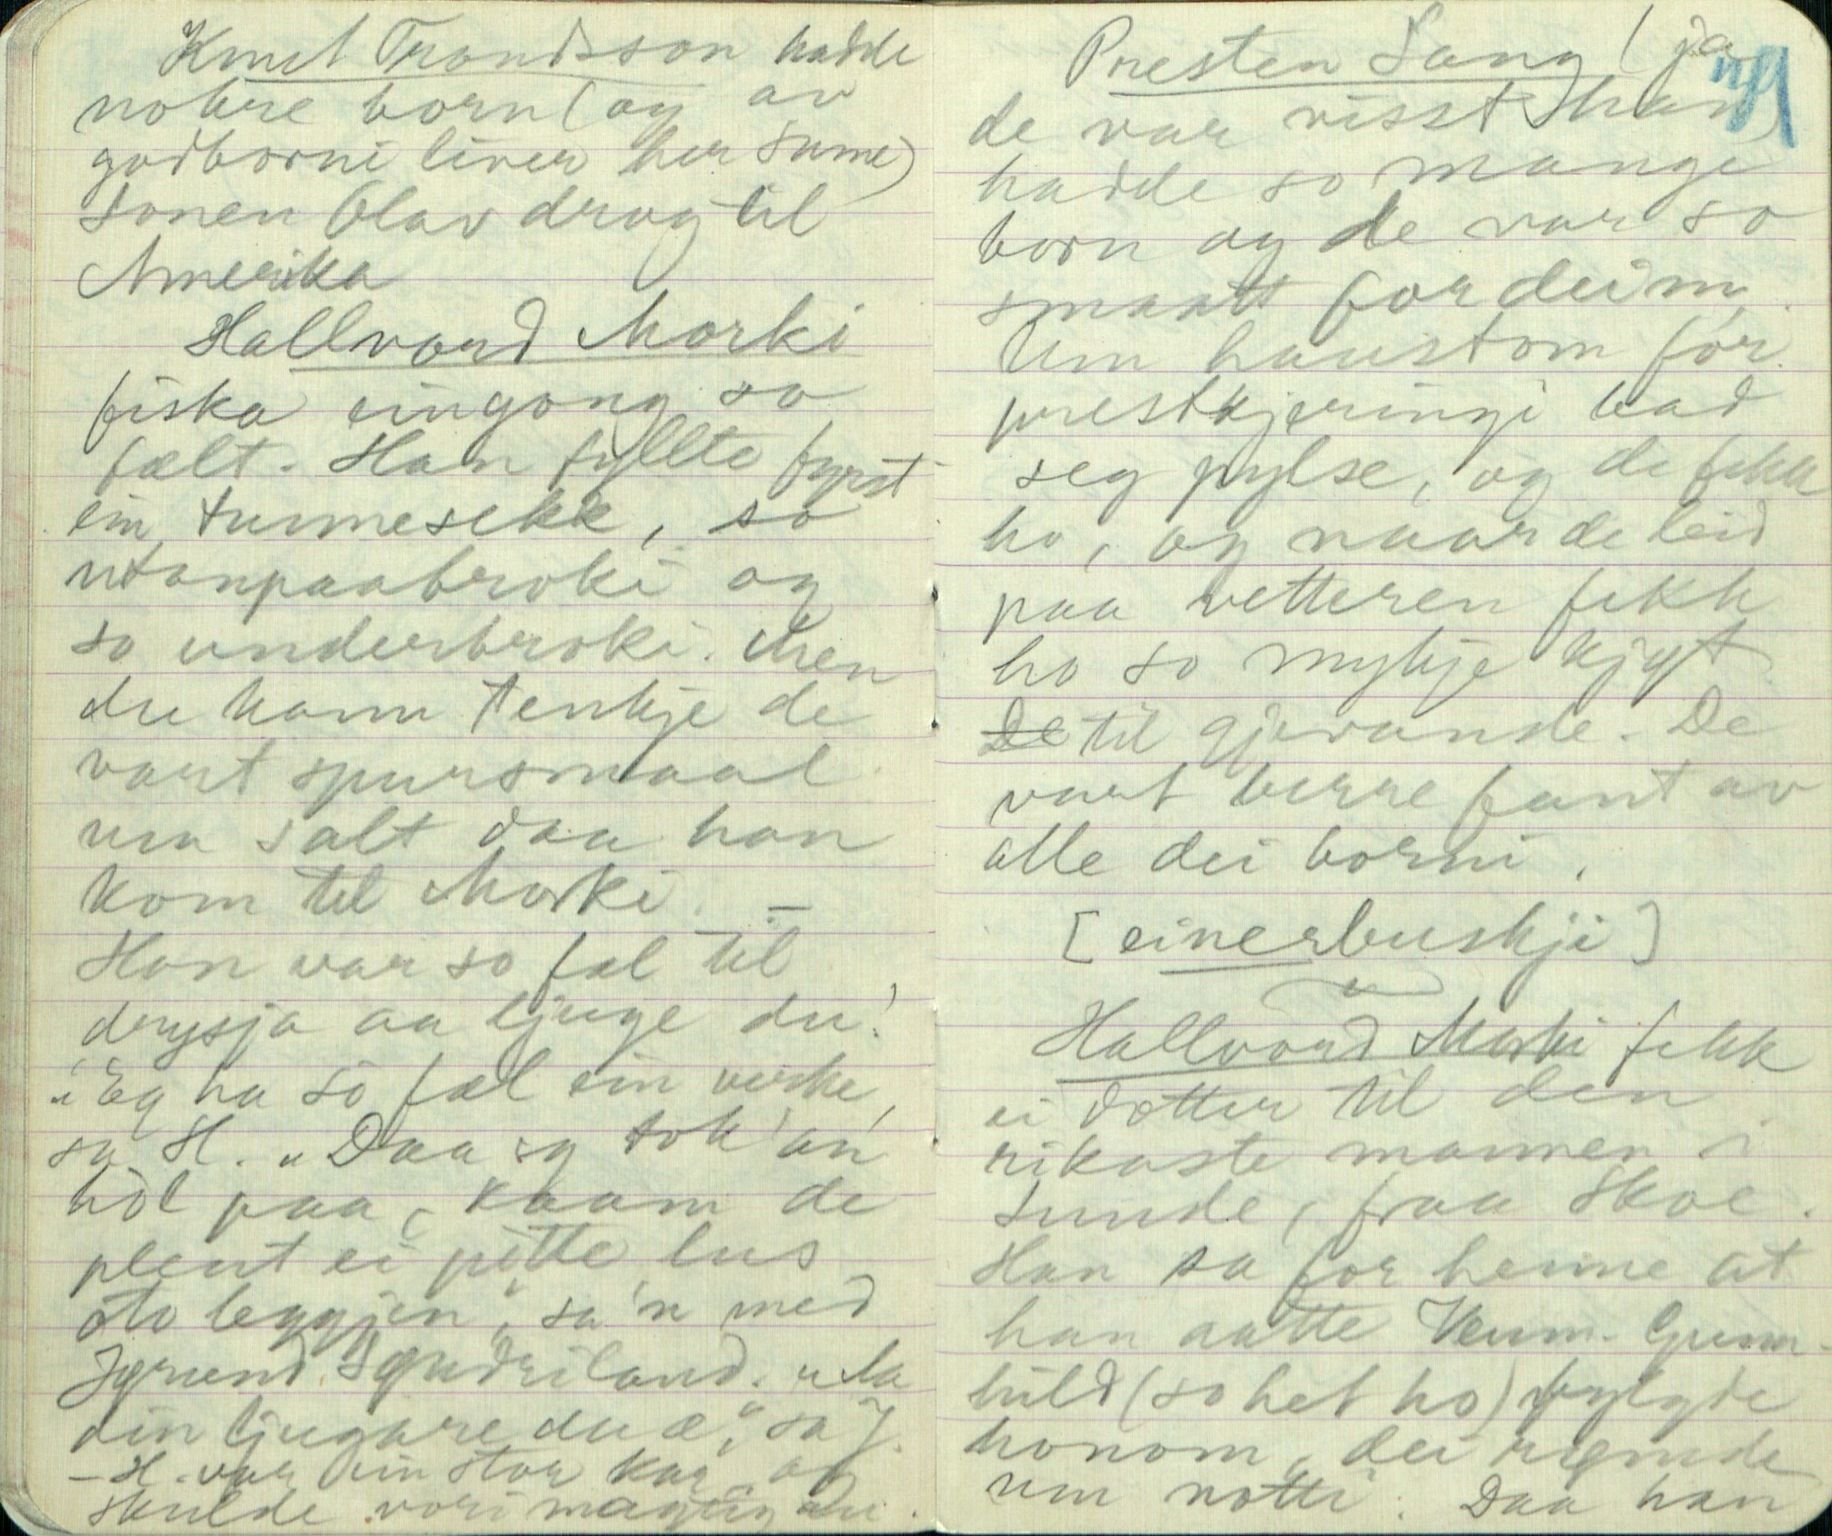 Knut Trondsson hadde
nokre born (og av
godborni liver her sume)
Sonen Olav drog til
Amerika
Hallvord Morki
fiska eingong so
fælt. Han fyllte fyrst
ein tunnesekk, so
utanpaabroki og
so underbroki. Men
du kann tenkje de
vart spursmaal
um salt daa han
kom til Morki. —
Han var so fæl til
drysja aa ljuge du!
"Eg ha so fæl ein verke,
sa H. "Daa eg tok 'an
hòl paa, kaam de
plent ei pitte lus
òto leggjen", sa'n med
Jørund . "Ja
din ljugare du æ," sa J.
— H. var ein stor kar og
skulde vori magtig du.
Presten Lang (ja
de var visst han)
hadde so mange
born og de var so
smaatt for deim.
Um haustom fór
prestkjeringi bad
seg pylse, og de fekk
ho, og naar de leid
paa vetteren fekk
ho so mykje kjøt
De til gjevande. De
vart berre fant av
alle dei borni.
[einerbuskji]
Hallvord Morki fekk
ei dotter til den
rikaste mannen i
Sunde, fraa Skoe.
Han sa for henne at
han aatte Kum. Gunn-
hild (so het ho) fylgde
honom, dei rømde
um notti. Daa han